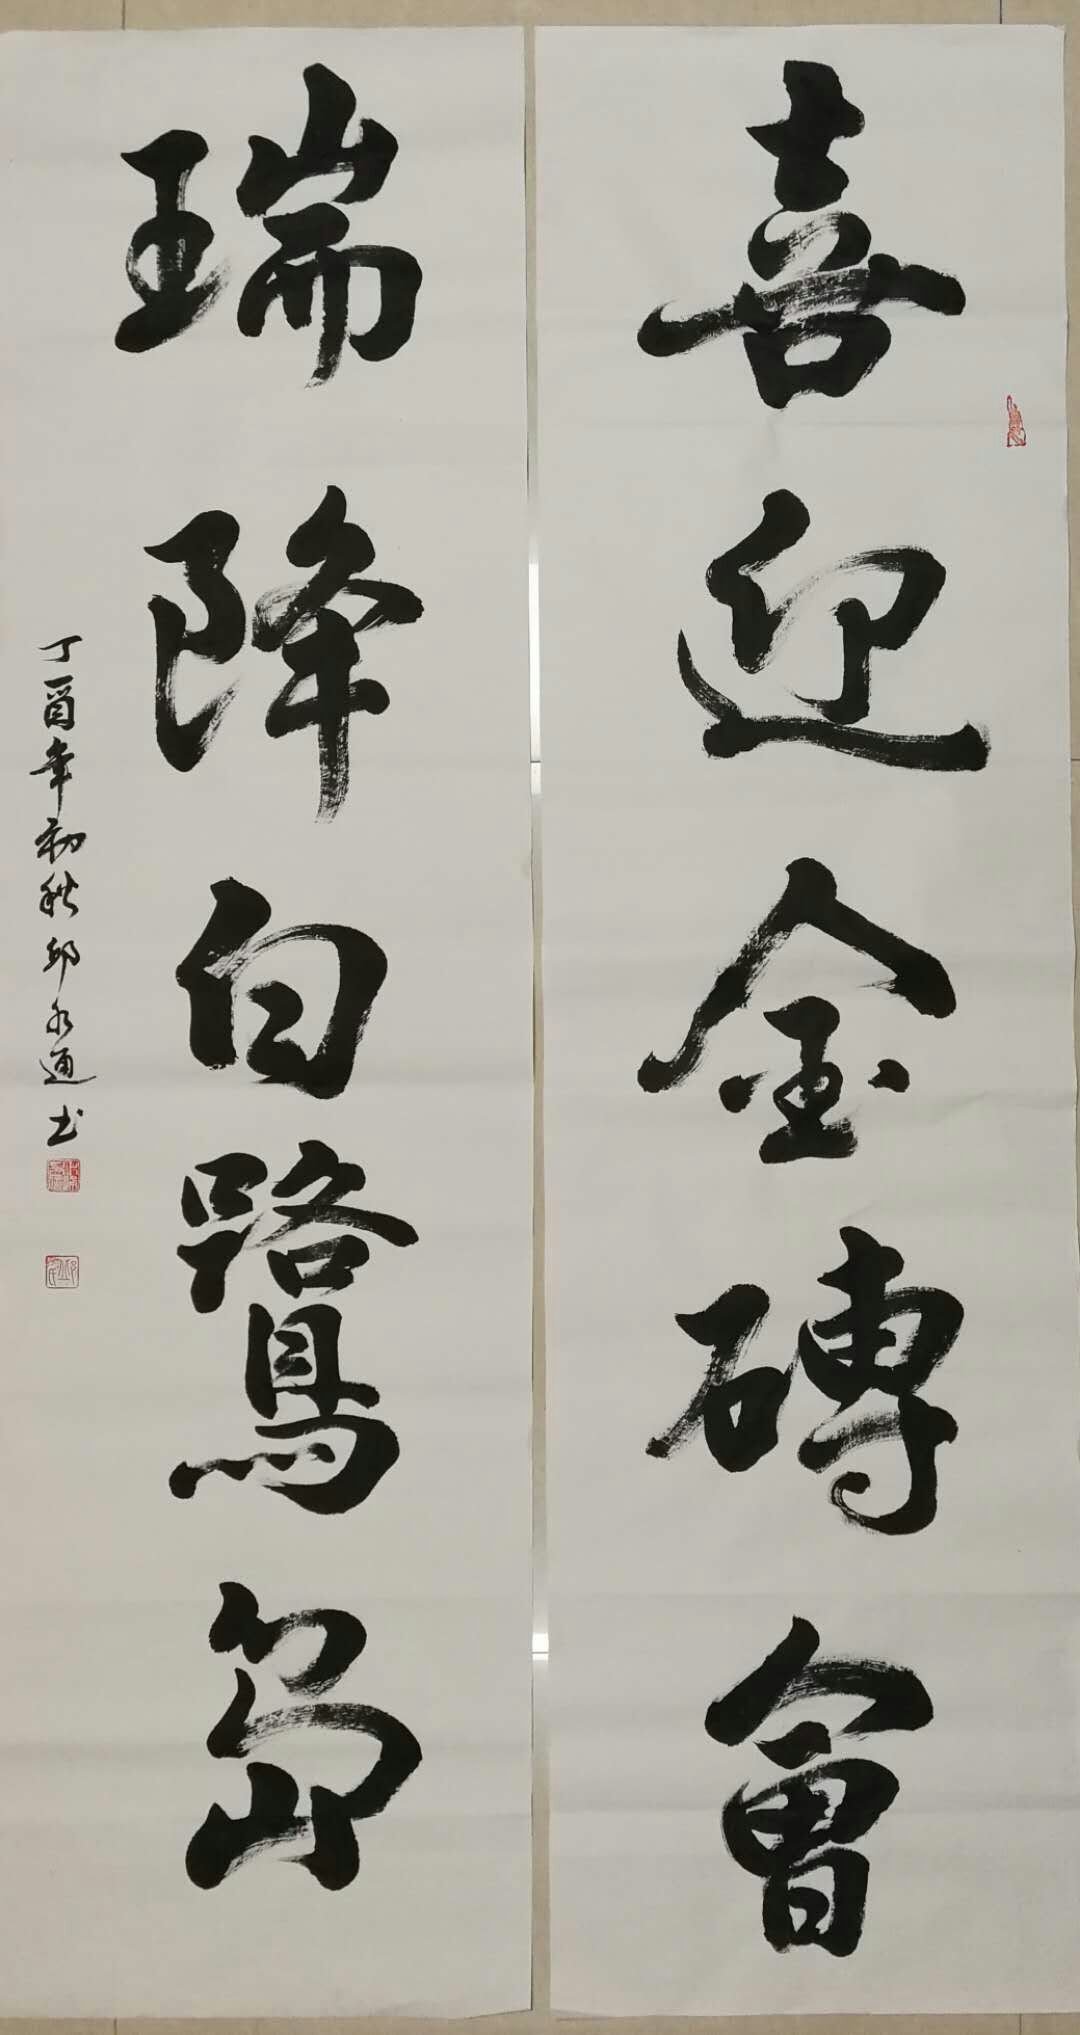 喜迎金磚會
瑞降白鷺島
丁酉年初秋邱永通书